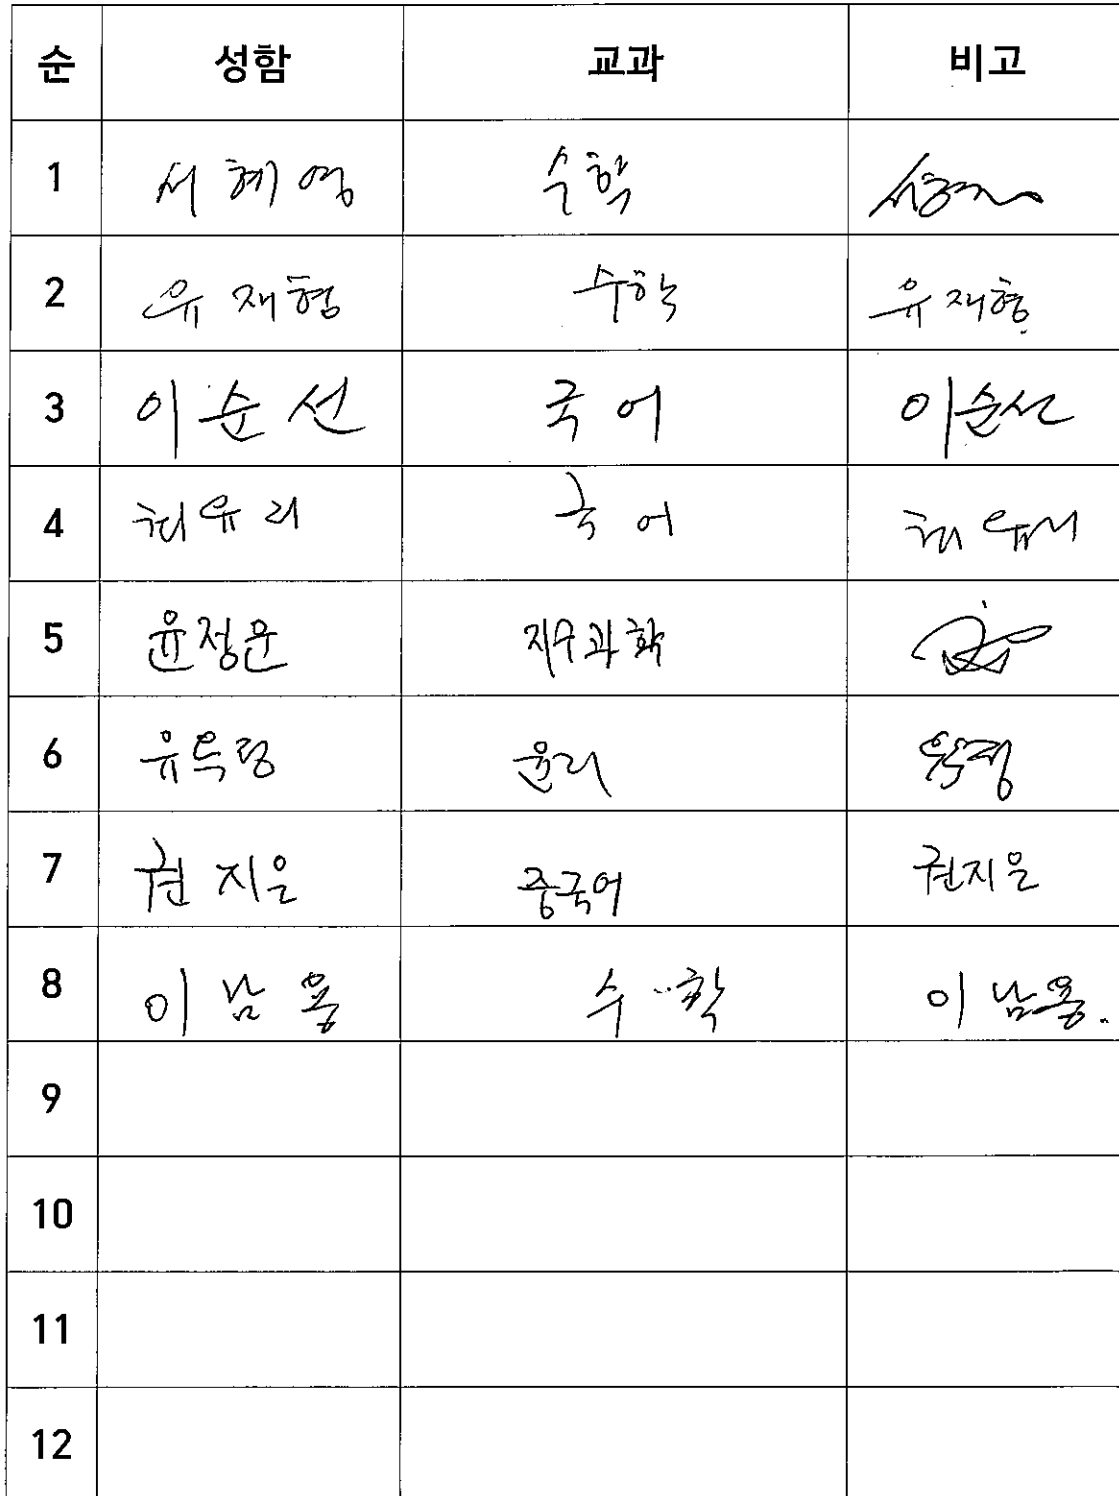 순 성함 교과 비고
1 서혜영 수학
2 유재형 수학 유재형
3 이순선 국어 이순선
4 최유리 국어 최유리
5 윤정운 지구과학
6 유득령 윤리
7 권지은 중국어 권지은
8 이남용 수학 이남용.
9
10
11
12